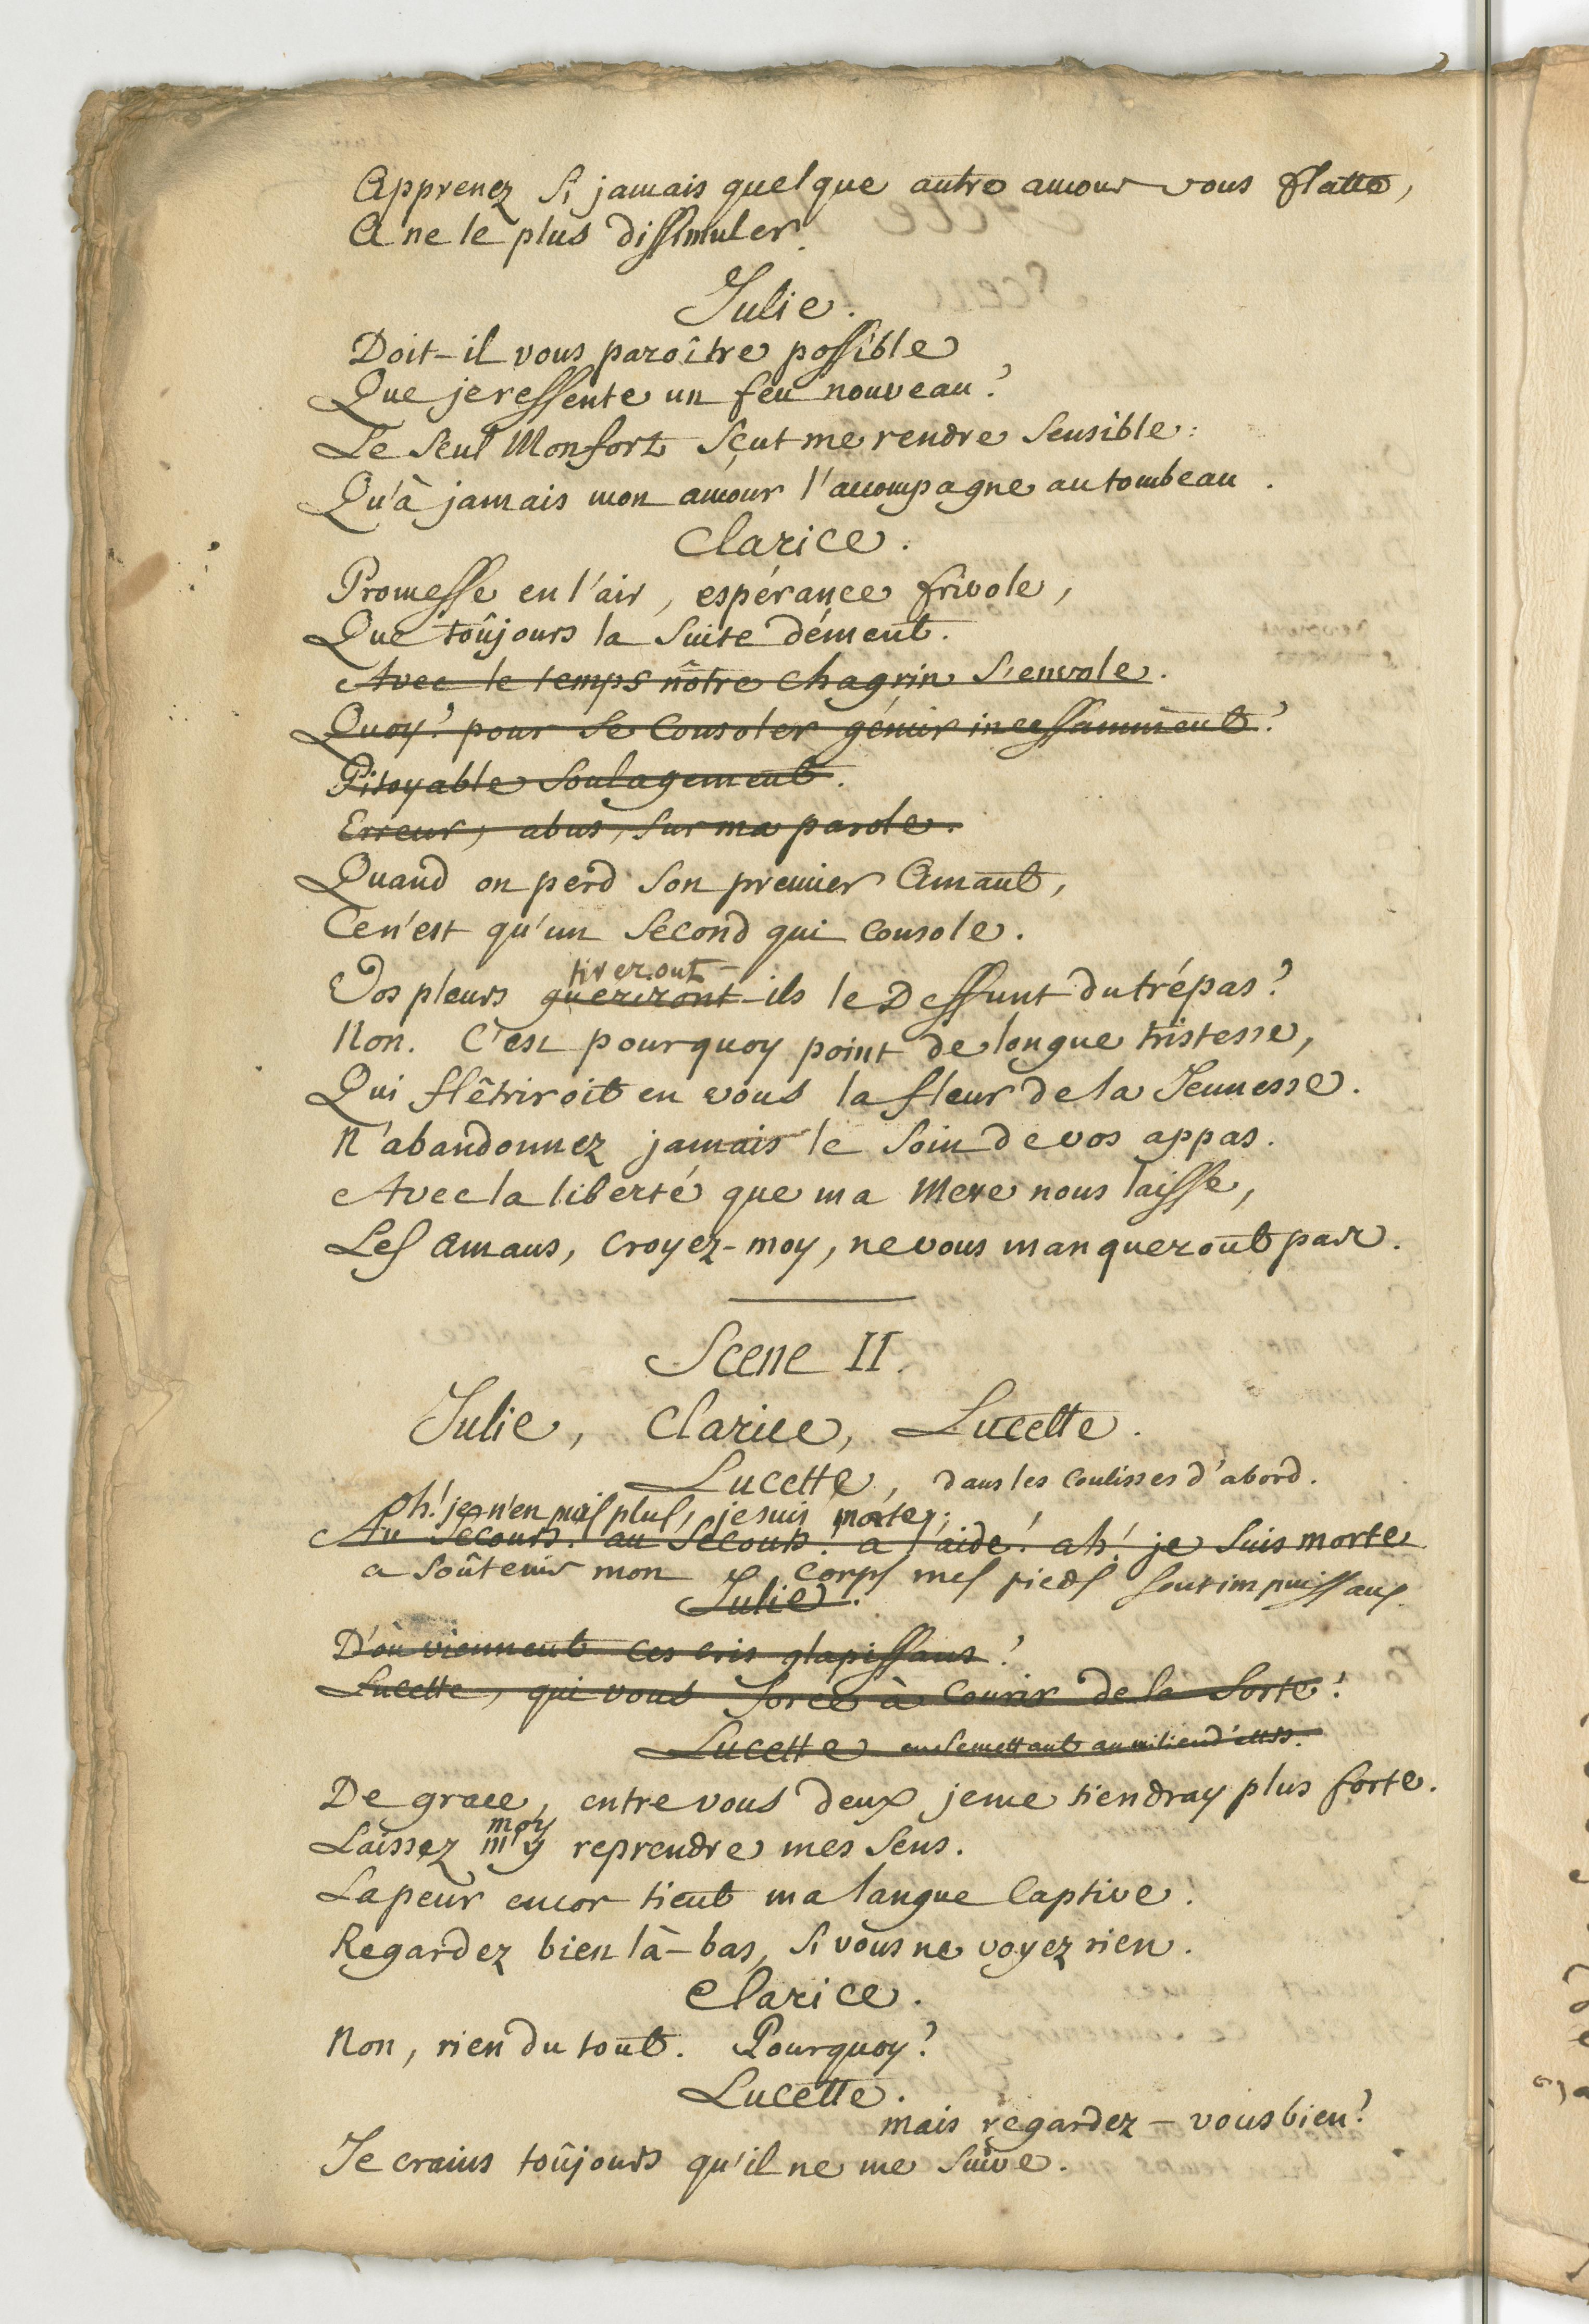 Apprenez si jamais quelque autre amour vous flatte,
A ne le plus dissimuler.
Julie.
Doit-il vous paroître possible
Que je ressente un feu nouveau?
Le seul Monfort sçut me rendre sensible:
Qu'à jamais mon amour l'accompagne au tombeau.
Clarice.
Promesse en l'air, espérance frivole,
Que toûjours la suite dément.
Avec le temps nôtre chagrin s'envole.
Quoy? pour se consoler gémir incessamment?
Pitoyable soulagement.
Erreur, abus, sur ma parole.
Quand on perd son premier Amant,
Ce n'est qu'un second qui console.
tireront-
Vos pleurs gueriront-ils le Deffunt du trépas?
Non. C'est pourquoy point de longue tristesse,
Qui flêtriroit en vous la fleur de la Jeunesse.
N'abandonnez jamais le soin de vos appas.
Avec la liberté que ma Mere nous laisse,
Les Amans, croyez-moy, ne vous manqueront pas.
Scene II.
Julie, Clarice, Lucette.
Lucette, dans les coulisses d'abord.
oh! je n'en puis plus, je suis morte;
Au secours! au secours! à l'aide! ah! je suis morte
a soûtenir mon corps mes pieds sont impuissans
Julie.
D'où viennent ces cris glapissans?
Lucette, qui vous force à courir de la sorte?
Lucette en se mettant au milieu d'elles.
De grace, entre vous deux je me tiendray plus forte.
moy
Laissez m'y reprendre mes sens.
La peur encor tient ma langue captive!
Regardez bien là-bas, si vous ne voyez rien.
Clarice.
Non, rien du tout. Pourquoy?
Lucette.
mais regardez-vous bien?
Je crains toûjours qu'il ne me suive.